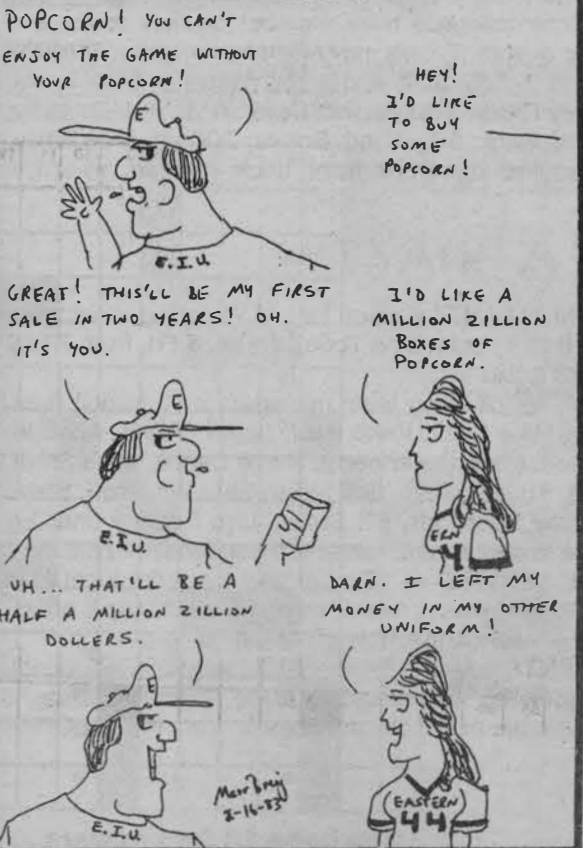 POPCORN! YOU CAN'T
ENJOY THE GAME WITHOUT
YOUR POPCORN!
HEY!
I'D LIKE
TO BUY
SOME
POPCORN!
E
E.I.U.
GREAT! THIS'LL BE MY FIRST
SALE IN TWO YEARS! OH.
IT'S YOU.
I'D LIKE A
MILLION ZILLION
BOXES OF
POPCORN.
E
E.I.U.
ERN
4
UH... THAT'LL BE A
HALF A MILLION ZILLION
DOLLERS.
DARN. I LEFT MY
MONEY IN MY OTHER
UNIFORM!
E
E.I.U.
EASTERN
44